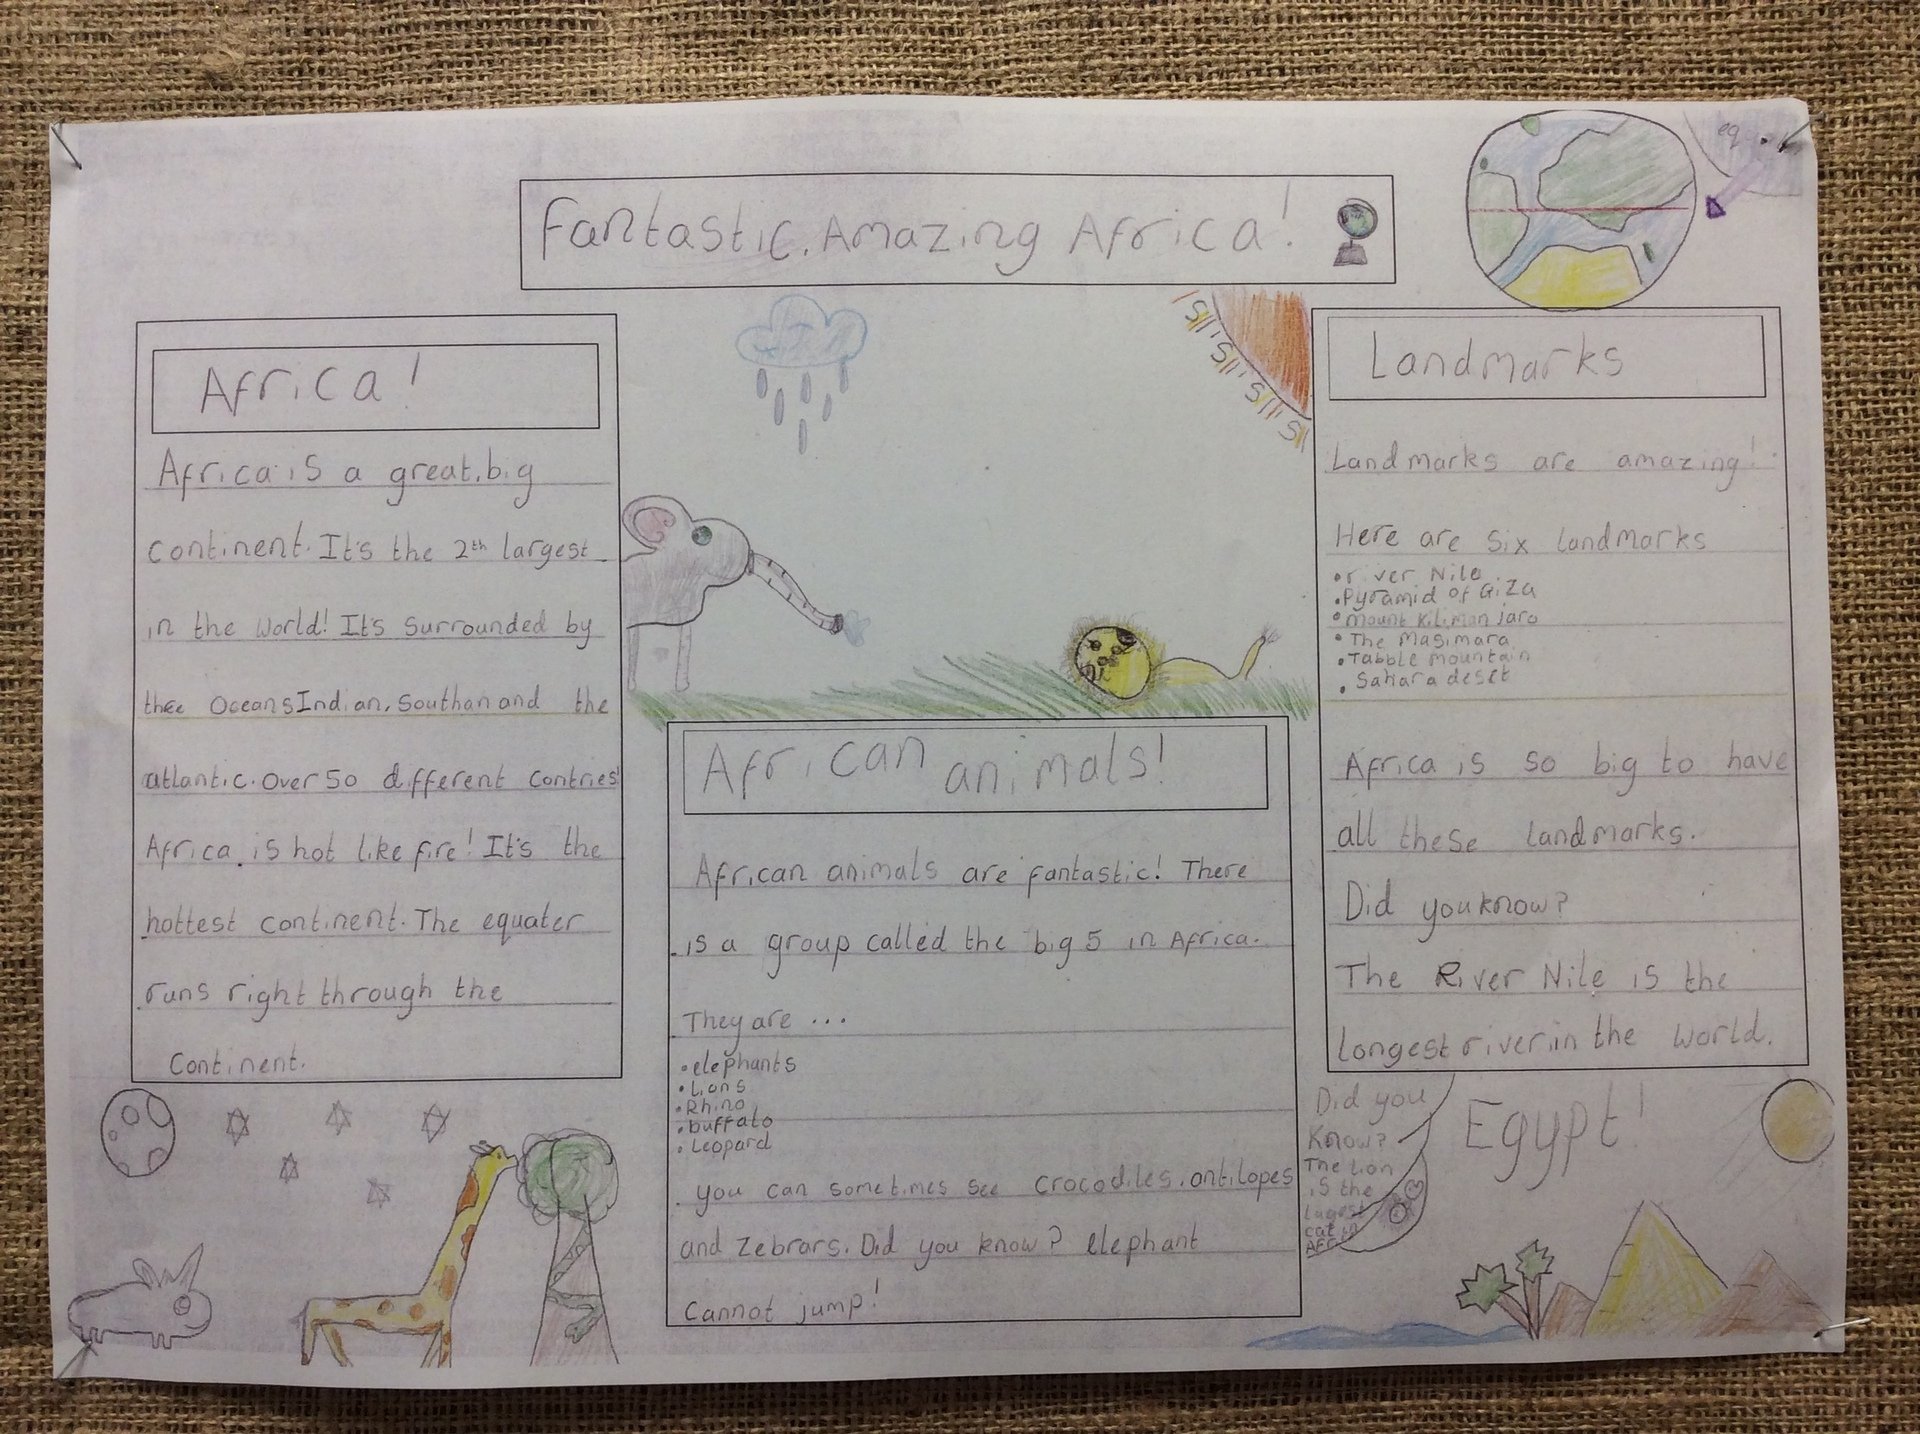 Fantastic, Amazing Africa!
Africa!
Africa is a great, big
continent. It's the 2th largest
in the world! It's surrounded by
thee Oceans Indian, Southan and the
atlantic. Over 50 different contries!
Africa is hot like fire! It's the
hottest continent. The equater
runs right through the
Continent.
African animals!
African animals are fantastic! There
is a group called the big 5 in Africa.
They are ...
• elephants
• Lions
• Rhino
• buffalo
• Leopard
you can sometimes see crocodiles, antilopes
and zebrars. Did you know? elephant
cannot jump!
Landmarks
Landmarks are amazing!
Here are six landmarks
• river Nile
• Pyramid of Giza
• mount Kilimanjaro
• The Masimara
• Tabble mountain
• Sahara desrt
Africa is so big to have
all these landmarks.
Did you know?
The River Nile is the
longest river in the world.
Did you
Know?
The Lion
is the
lagest
cat in
Afri
Egypt!